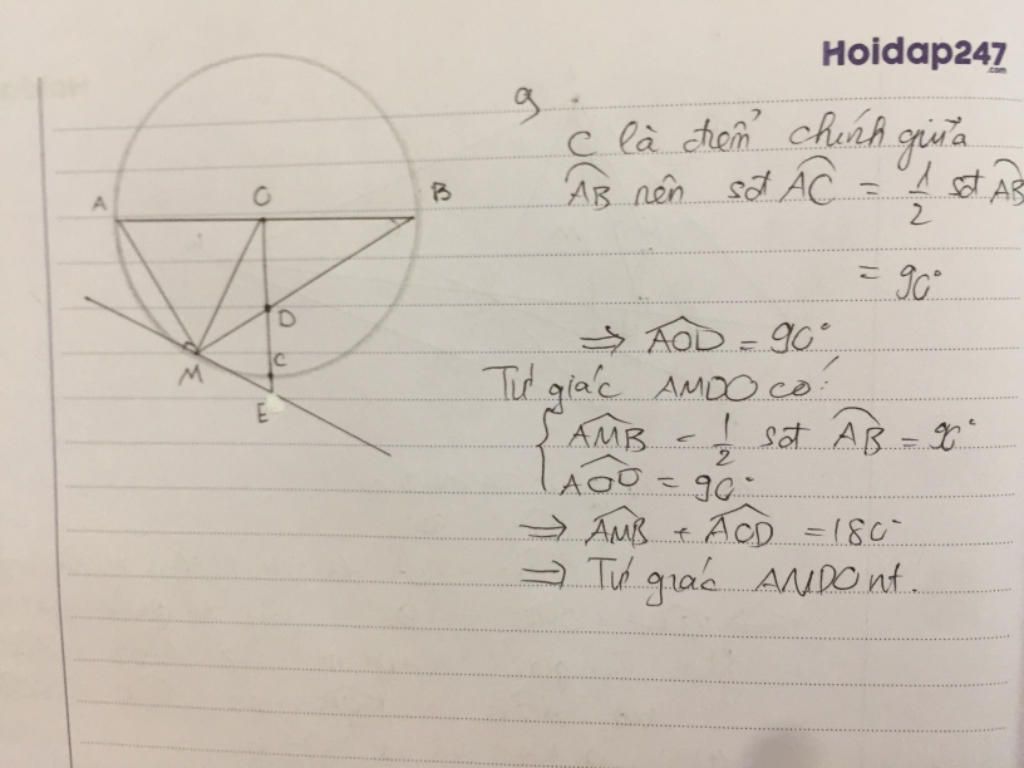 Hoidap247
.com
a,
C là điểm chính giữa
AB nên sđ AC = 1/2 sđ AB
= 90°
⇒ AOD = 90°
Tứ giác AMDO có:
{ AMB = 1/2 sđ AB = 90°
AOD = 90°
⇒ AMB + AOD = 180°
⇒ Tứ giác AMDO nt.
A
O
B
D
C
M
E